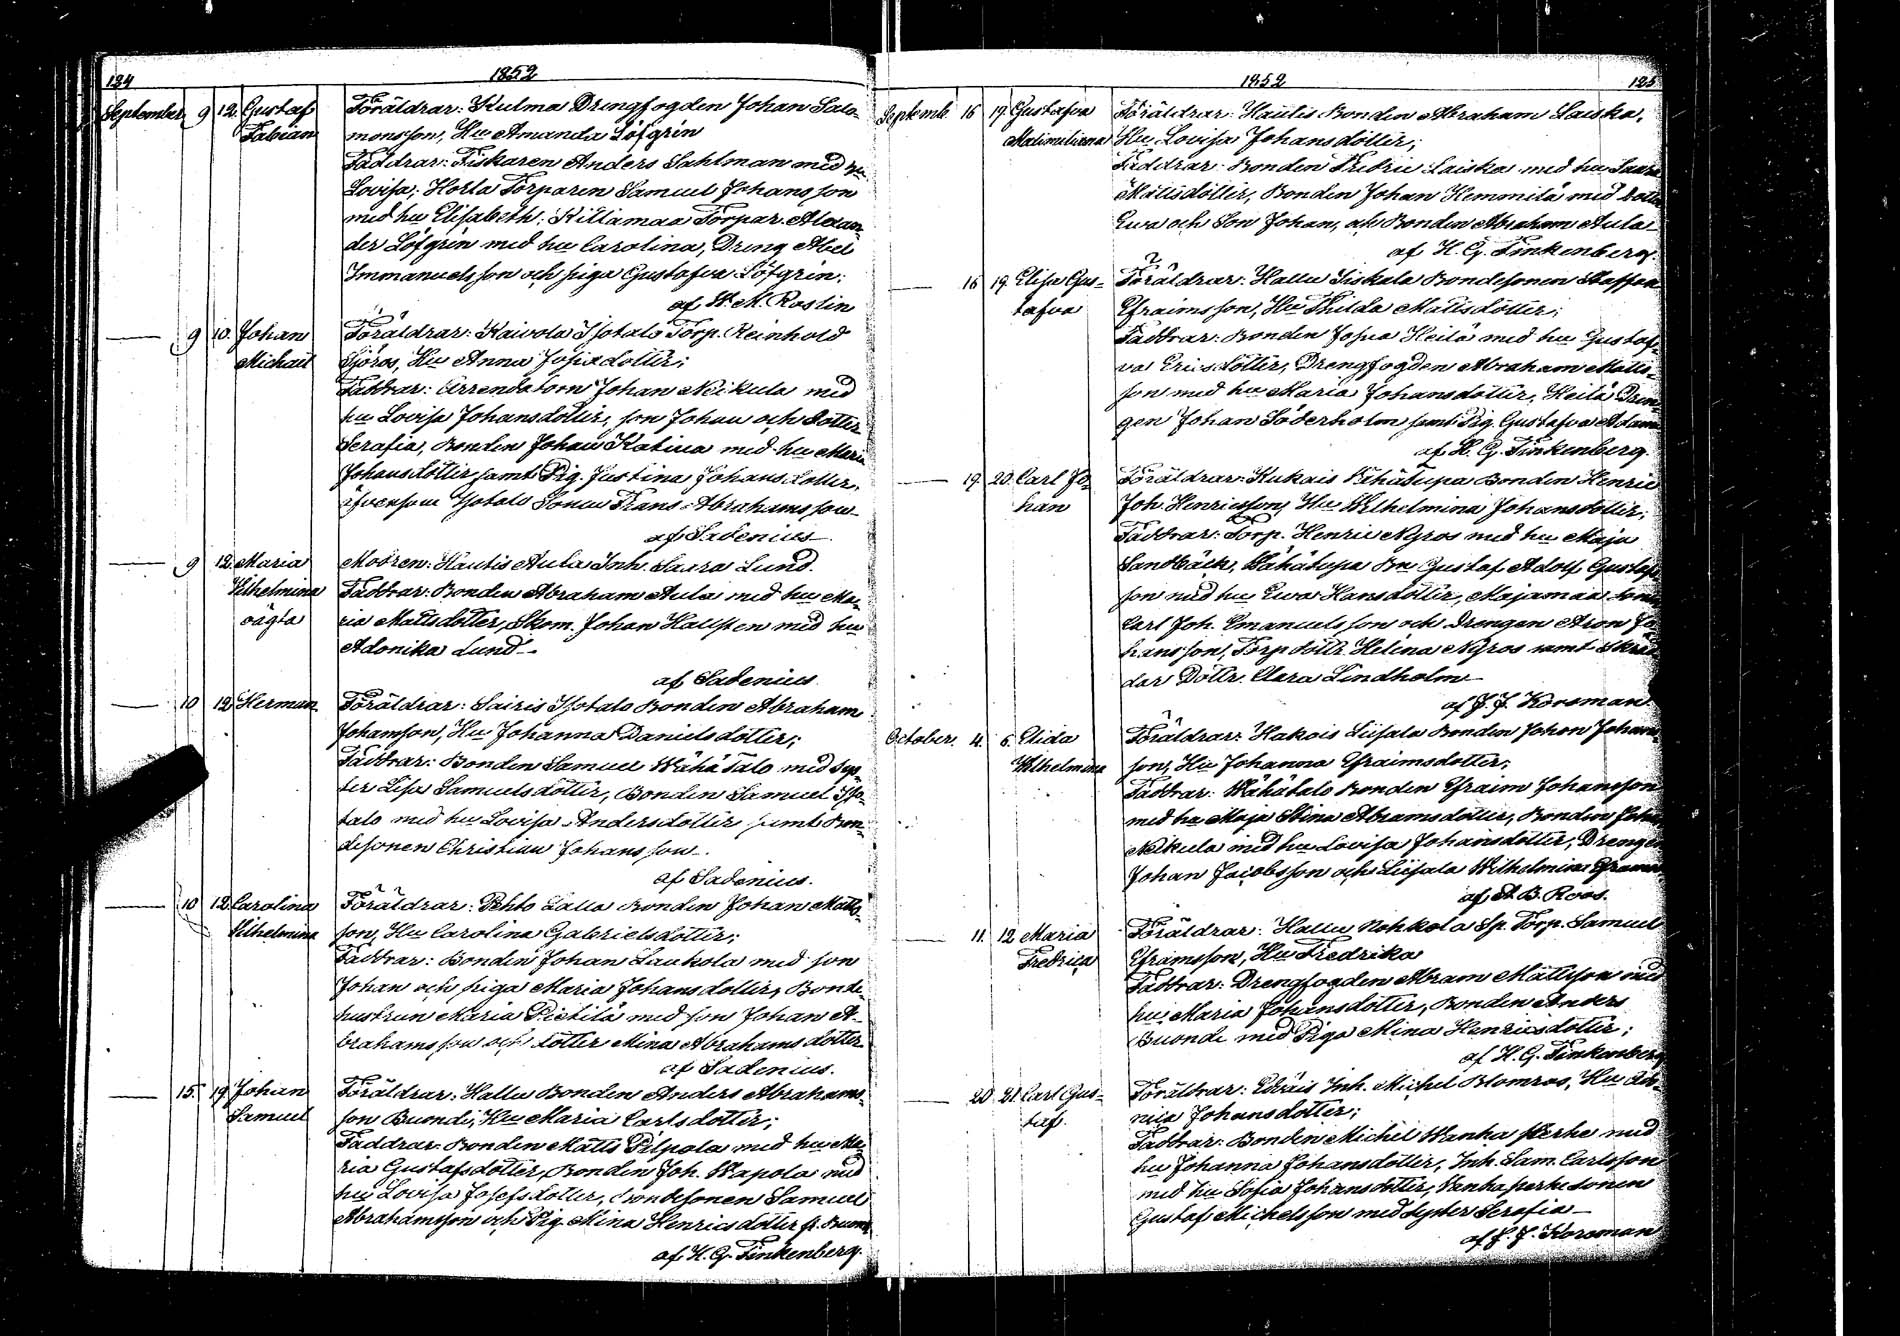 124
1852
September 9 12. Gustaf Fabian
Föräldrar: Kulma Drengfogden Johan Salo-
monsson, Hu Amanda Löfgrén
Faddrar: Fiskaren Anders Sahlman med hu
Lovisa; Horla Torparen Samuel Johansson
med hu Elisabeth. Killamaa Torpar. Alexan-
der Löfgrén med hu Carolina, Dreng Abel
Immanuelsson och piga Gustafva Löfgrén.
af W. M. Roslin
9 10. Johan Michail
Föräldrar: Kaivola Isotalo Torp. Reinhold
Sjöros, Hu Anna Josia dotter;
Faddrar: Arrendatorn Johan Neikula med
hu Lovisa Johansdotter, son Johan och Dotter
Serafia, Bonden Johan Katina med hu Maria
Johansdotter samt Pig. Justina Johans dotter,
äfvensom Isotalo Sonen Frans Abrahamsson
af Sadenius
9 12. Maria Wilhelmina oägta
Modren: Hautis Aula Inh. Saara Lund.
Faddrar: Bonden Abraham Aula med hu Ma-
ria Mattsdotter, Skom. Johan Hallsten med hu
Adonika Lund
af Sadenius.
10 12 Herman
Föräldrar: Sairis Isotalo Bonden Abraham
Johansson, Hu Johanna Daniels dotter;
Faddrar: Bonden Samuel Wähä Talo med Sys-
ter Lisa Samuelsdotter, Bonden Samuel Iso-
talo med hu Lovisa Andersdotter, samt Bon-
desonen Christian Johansson
af Sadenius.
10 12. Carolina Wilhelmina
Föräldrar: Pehto Lalla Bonden Johan Matts-
son, Hu Carolina Gabrielsdotter;
Faddrar: Bonden Johan Laukola med son
Johan och piga Maria Johansdotter, Bonde-
hustrun Maria Pietilä med son Johan A-
brahamsson och dotter Mina Abrahamsdotter
af Sadenius.
15. 19. Johan Samuel
Föräldrar: Hallu Bonden Anders Abrahams-
son Buondi, Hu Maria Carlsdotter;
Faddrar: Bonden Matts Pilpola med hu Ma-
ria Gustafsdotter, Bonden Joh. Wapola med
hu Lovisa Josefsdotter, Bondesonen Samuel
Abrahamsson och Pig. Mina Henricsdotter fr. Buond
af H. G. Finkenberg.
1852
125
Septemb. 16 19. Gustafva
Föräldrar: Hautis Bonden Abraham Laiska,
Hu Lovisa Johansdotter;
Faddrar: Bonden Fredric Laiska med hu Saara
Mattsdotter, Bonden Johan Hemmilä med dotter
Eva och Son Johan, och Bonden Abraham Aula
af H. G. Finkenberg.
16 19. Elisa Gus-
tafva
Föräldrar: Hallu Siskala Bondesonen Staffan
Efraimsson, Hu Thilda Mattsdotter;
Faddrar: Bonden Josua Heilä med hu Gustaf-
va Ericsdotter, Drengfogden Abraham Matts-
son med hu Maria Johansdotter, Heilä Dren-
gen Johan Söderholm samt Pig. Gustafva Adams
af H. G. Finkenberg.
19. 20. Carl Jo-
han
Föräldrar: Kukais Wähätupa Bonden Henric
Joh. Henricsson, Hu Wilhelmina Johansdotter;
Faddrar: Torp. Henric Nyros med hu Maja
Sandbäck, Wähätupa Bn Gustaf Adolf Gustafs-
son med hu Eva Hansdotter, Majamaa Sonen
Carl Joh. Emanuelsson och Drengen Aron Jo-
hansson, Torp dottr Helena Nyros samt Skräd-
dar Dottr. Clara Lindholm
af J. J. Korsman.
October. 4. 6. Elida Wilhelmina
Föräldrar: Hakois Liisala Bonden Johan Johans-
son, Hu Johanna Efraimsdotter;
Faddrar: Wähätalo Bonden Efraim Johansson
med hu Maja Stina Abramsdotter, Bonden Johan
Neikula med hu Lovisa Johansdotter, Drengen
Johan Jacobsson och Liisala Wilhelmina Efraims
af A. B. Roos.
11. 12 Maria Fredrica
Föräldrar: Hallu Nohkola Sp. Torp. Samuel
Eframsson, Hu Fredrika
Faddrar: Drengfogden Abram Mattsson med
hu Maria Johansdotter, Bonden Anders
Buondi med Piga Mina Henricsdotter;
af H. G. Finkenberg
20 21 Carl Gus-
taf.
Föräldrar: Edväis Inh. Michel Blomros, Hu
Johansdotter;
Faddrar: Bonden Michel Wanha Perhe med
hu Johanna Johansdotter, Inh. Sam. Carlsson
med hu Sofia Johansdotter, Wanhaperhe sonen
Gustaf Michelsson med Syster Serafia
af J. J. Korsman